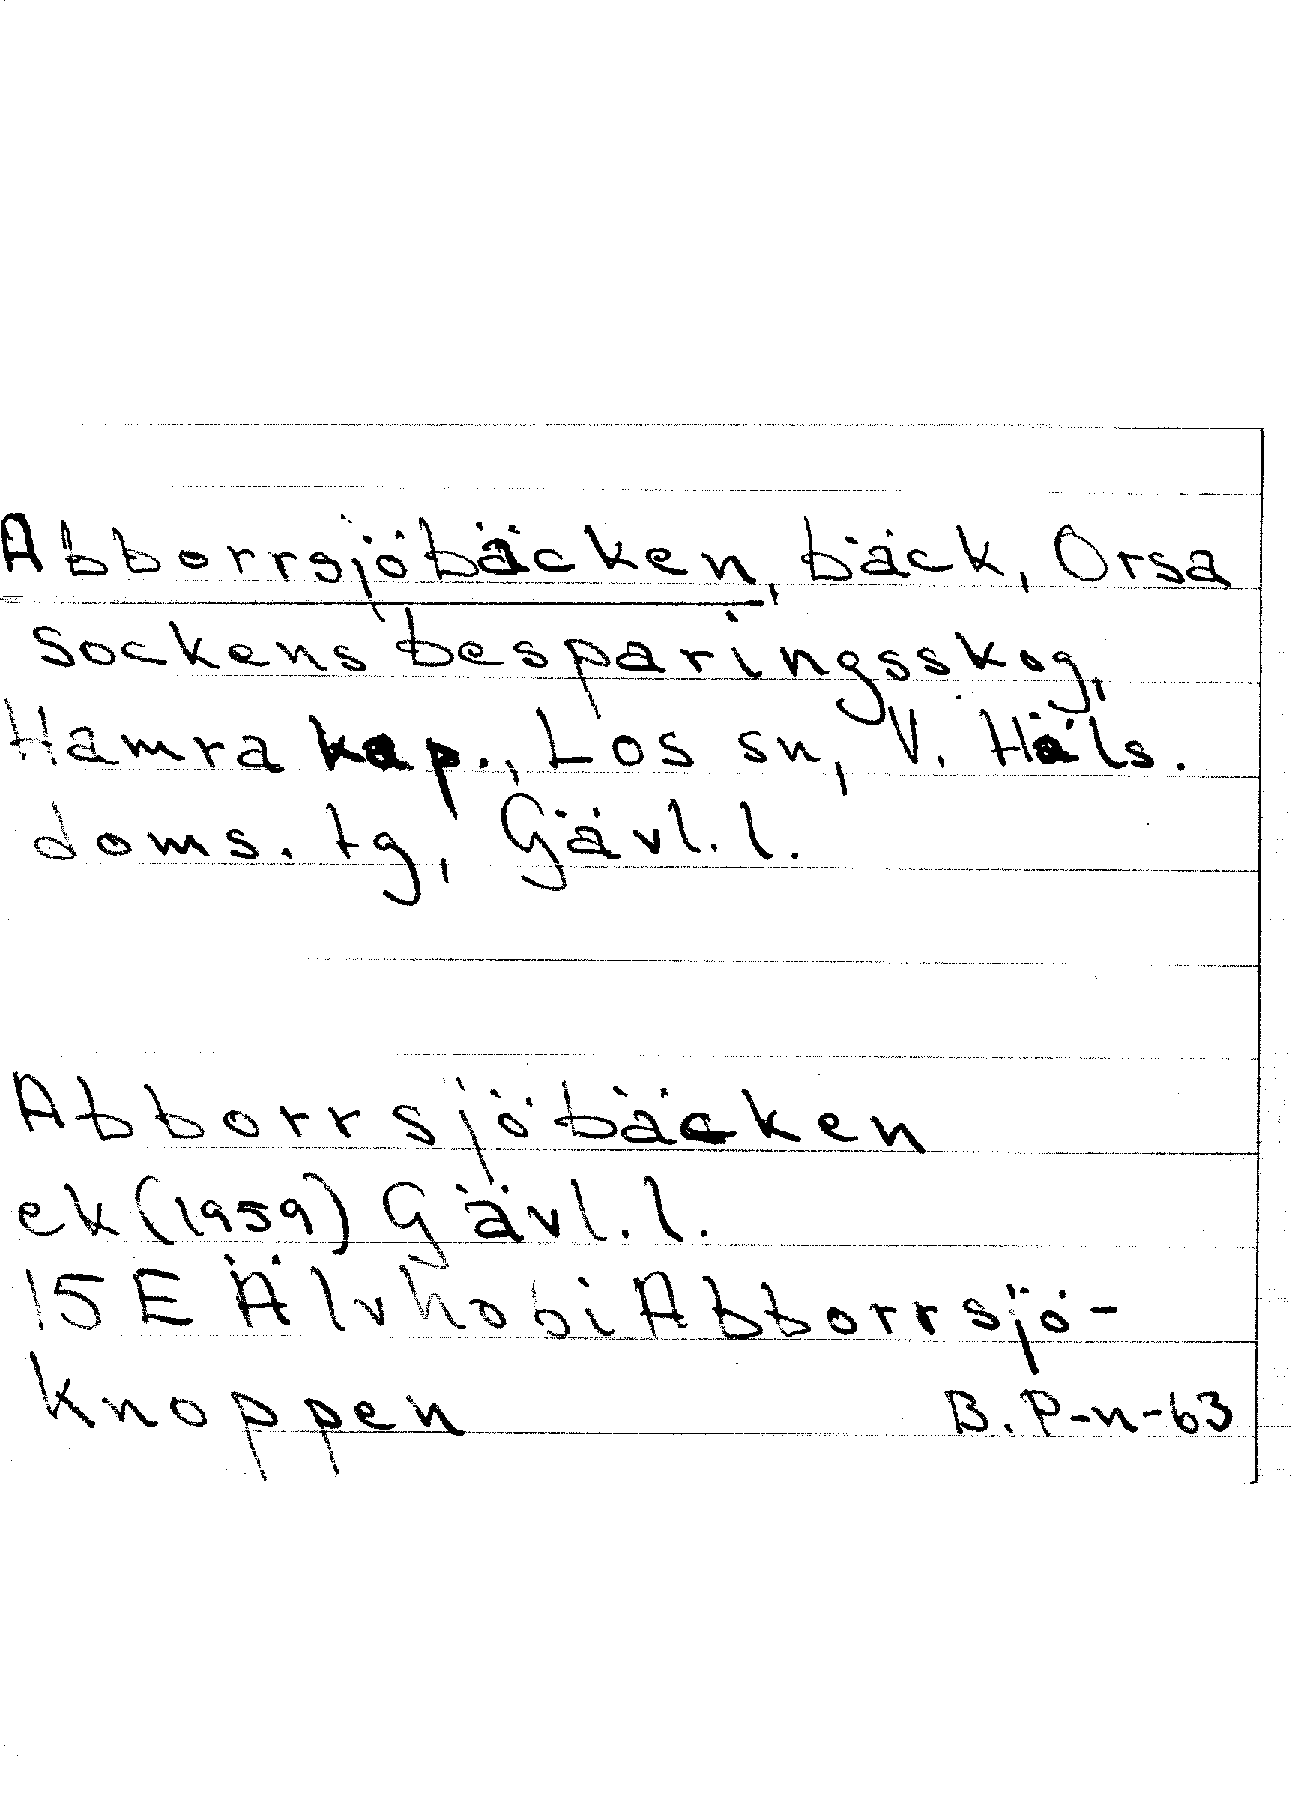 Abborrsjöbäcken, bäck, Orsa
sockens besparingsskog,
Hamra kap., Los sn, V. Häls.
doms. tg, Gävl. l.
Abborrsjöbäcken
ek (1959) Gävl. l.
15 E Älvho 5i Abborrsjö-
knoppen
B. P-n-63